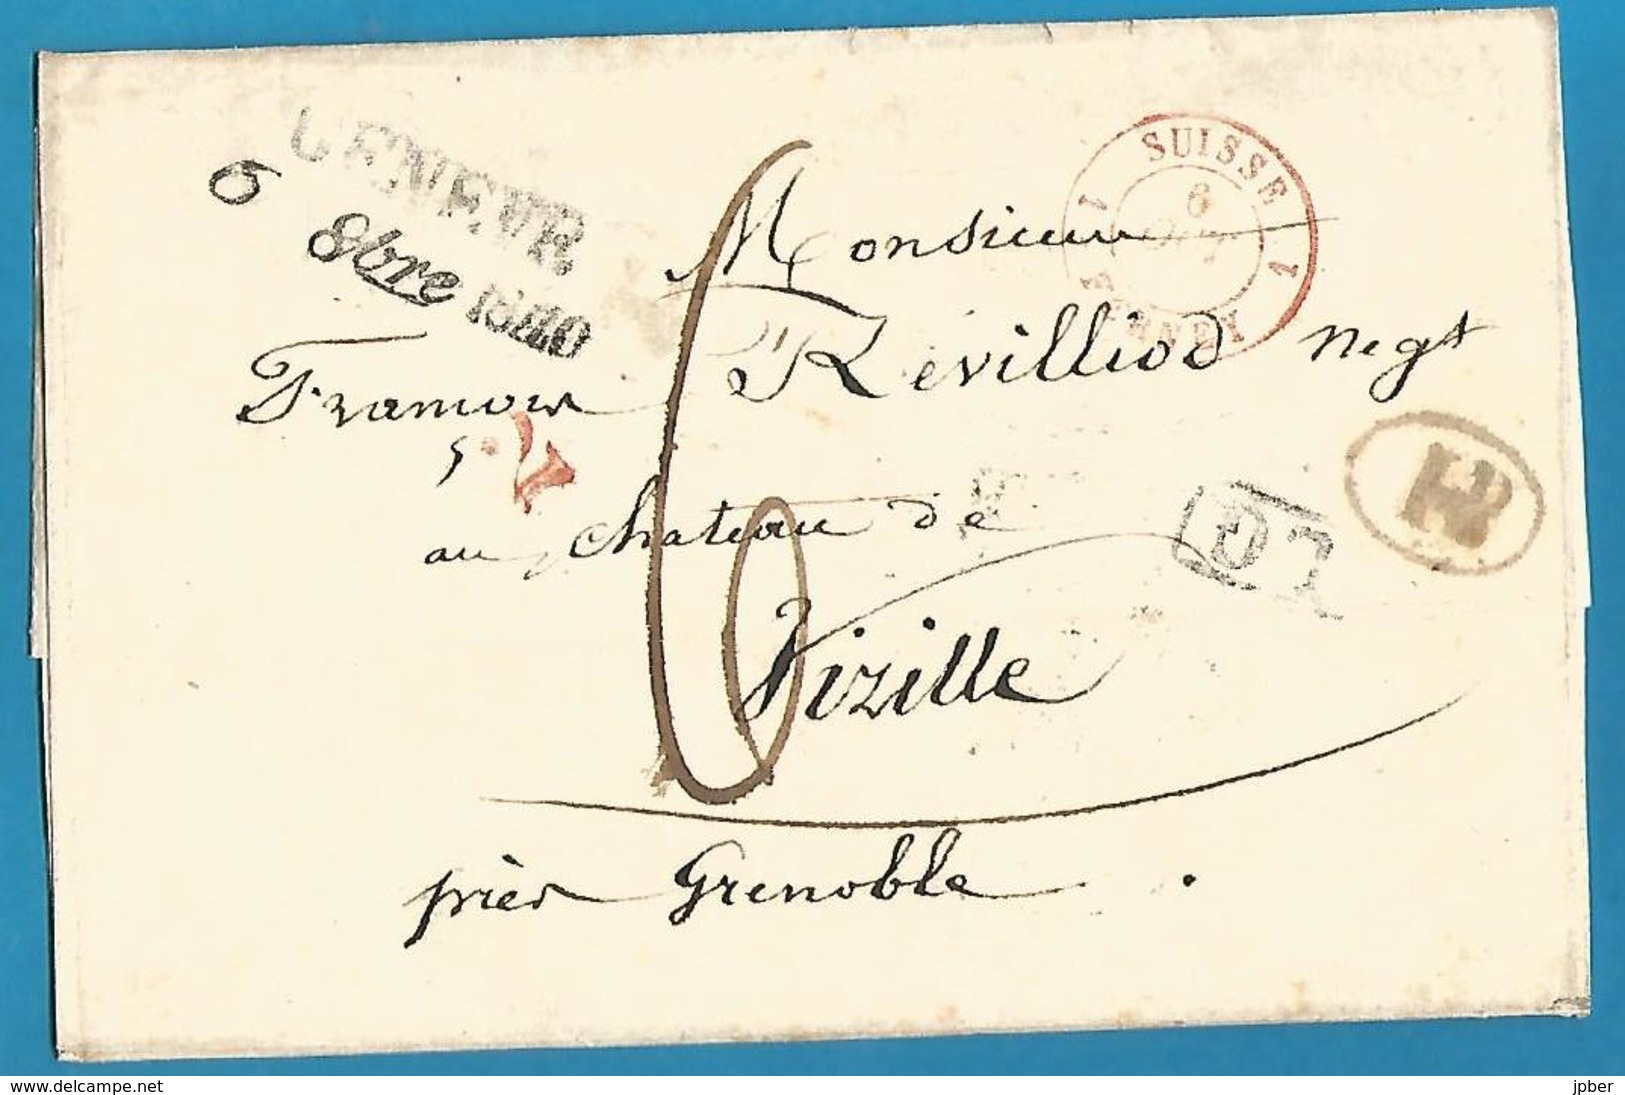 GENEVE
6 8bre 1840
SUISSE
1 1
6
FERNEY
Monsieur
Franco
Révilliod negt
au chateau de
Vizille
près Grenoble.
6
LGR
www.delcampe.net
jpber